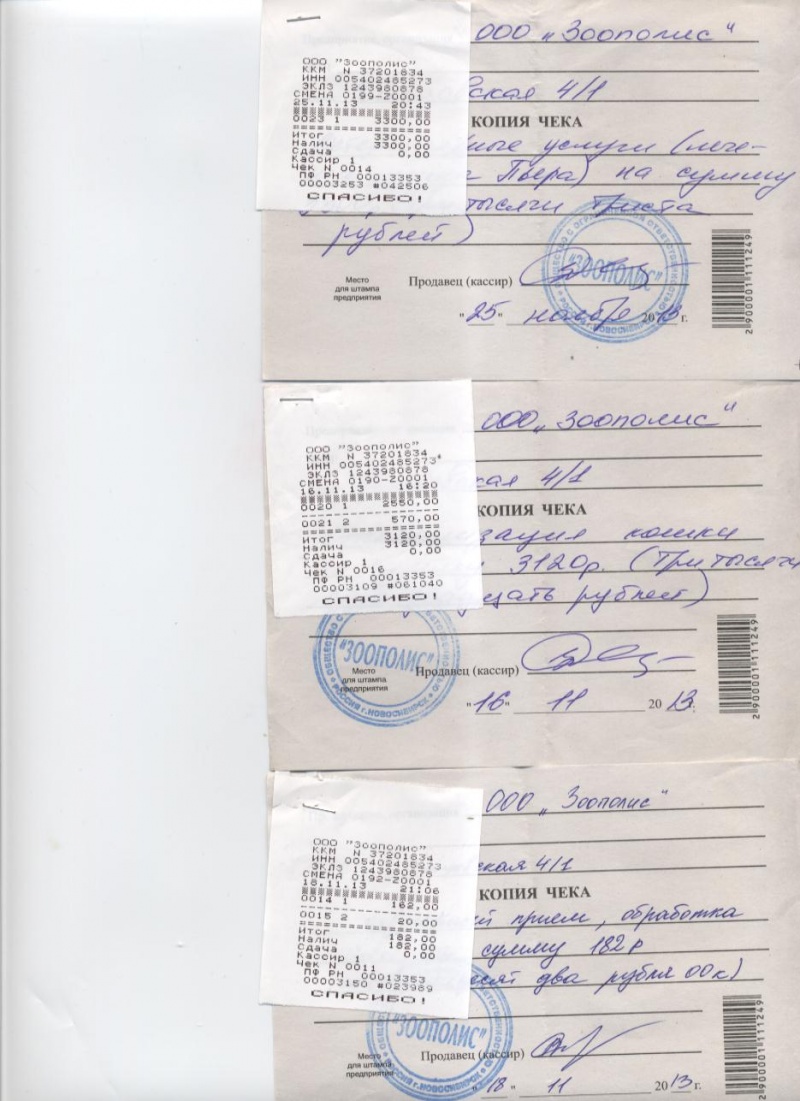 ООО "Зоополис"
ООО „Зоополис"
ККМ N 37201834
ИНН 005402485273
ЭКЛЗ 1243980878
СМЕНА 0199-Z0001
25.11.13 20:43
ская 4/1
0023 1 3300,00
КОПИЯ ЧЕКА
Итог 3300,00
Налич 3300,00
Сдача 0,00
Кассир 1
Чек N 0014
ПФ РН 00013353
00003253 #042506
СПАСИБО!
ные услуги (лече-
Пьера) на сумму
тысячи триста
рублей)
Место
для штампа
предприятия
Продавец (кассир)
"ЗООПОЛИС"
"25" ноября 2013 г.
2 900001 111249
ООО „Зоополис"
ООО "Зоополис"
ККМ N 37201834
ИНН 005402485273
ЭКЛЗ 1243980878
СМЕНА 0190-Z0001
16.11.13 16:20
кая 4/1
0020 1 2550,00
0021 2 570,00
КОПИЯ ЧЕКА
Итог 3120,00
Налич 3120,00
Сдача 0,00
Кассир 1
Чек N 0016
ПФ РН 00013353
00003109 #061040
СПАСИБО!
зация кошки
3120р. (Три тысячи
цать рублей)
"ЗООПОЛИС"
РОССИЯ г.НОВОСИБИРСК
Место
для штампа
предприятия
Продавец (кассир)
"16" 11 2013
2 900001 111249
ООО „Зоополис"
ООО "Зоополис"
ККМ N 37201834
ИНН 005402485273
ЭКЛЗ 1243980878
СМЕНА 0192-Z0001
18.11.13 21:06
ская 4/1
0014 1 162,00
0015 2 20,00
КОПИЯ ЧЕКА
Итог 182,00
Налич 182,00
Сдача 0,00
Кассир 1
Чек N 0011
ПФ РН 00013353
00003150 #023989
СПАСИБО!
ий прием, обработка
сумму 182р
есят два рубля 00к)
"ЗООПОЛИС"
Место
для штампа
предприятия
Продавец (кассир)
"18" 11 2013 г.
2 900001 111249